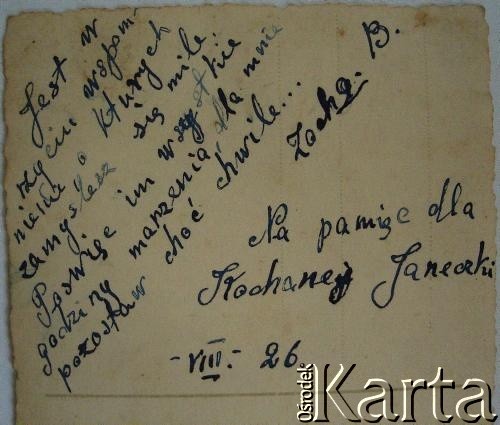 Jest w
życiu wspom-
nienie o których
zamyślesz się mile.
Poświęc im wszystkie
godziny marzenia dla mnie
pozostaw choć chwile...
Zocha. B.
Na pamięc dla
Kochanej Janeczki
- VIII. - 26.
Ośrodek
Karta